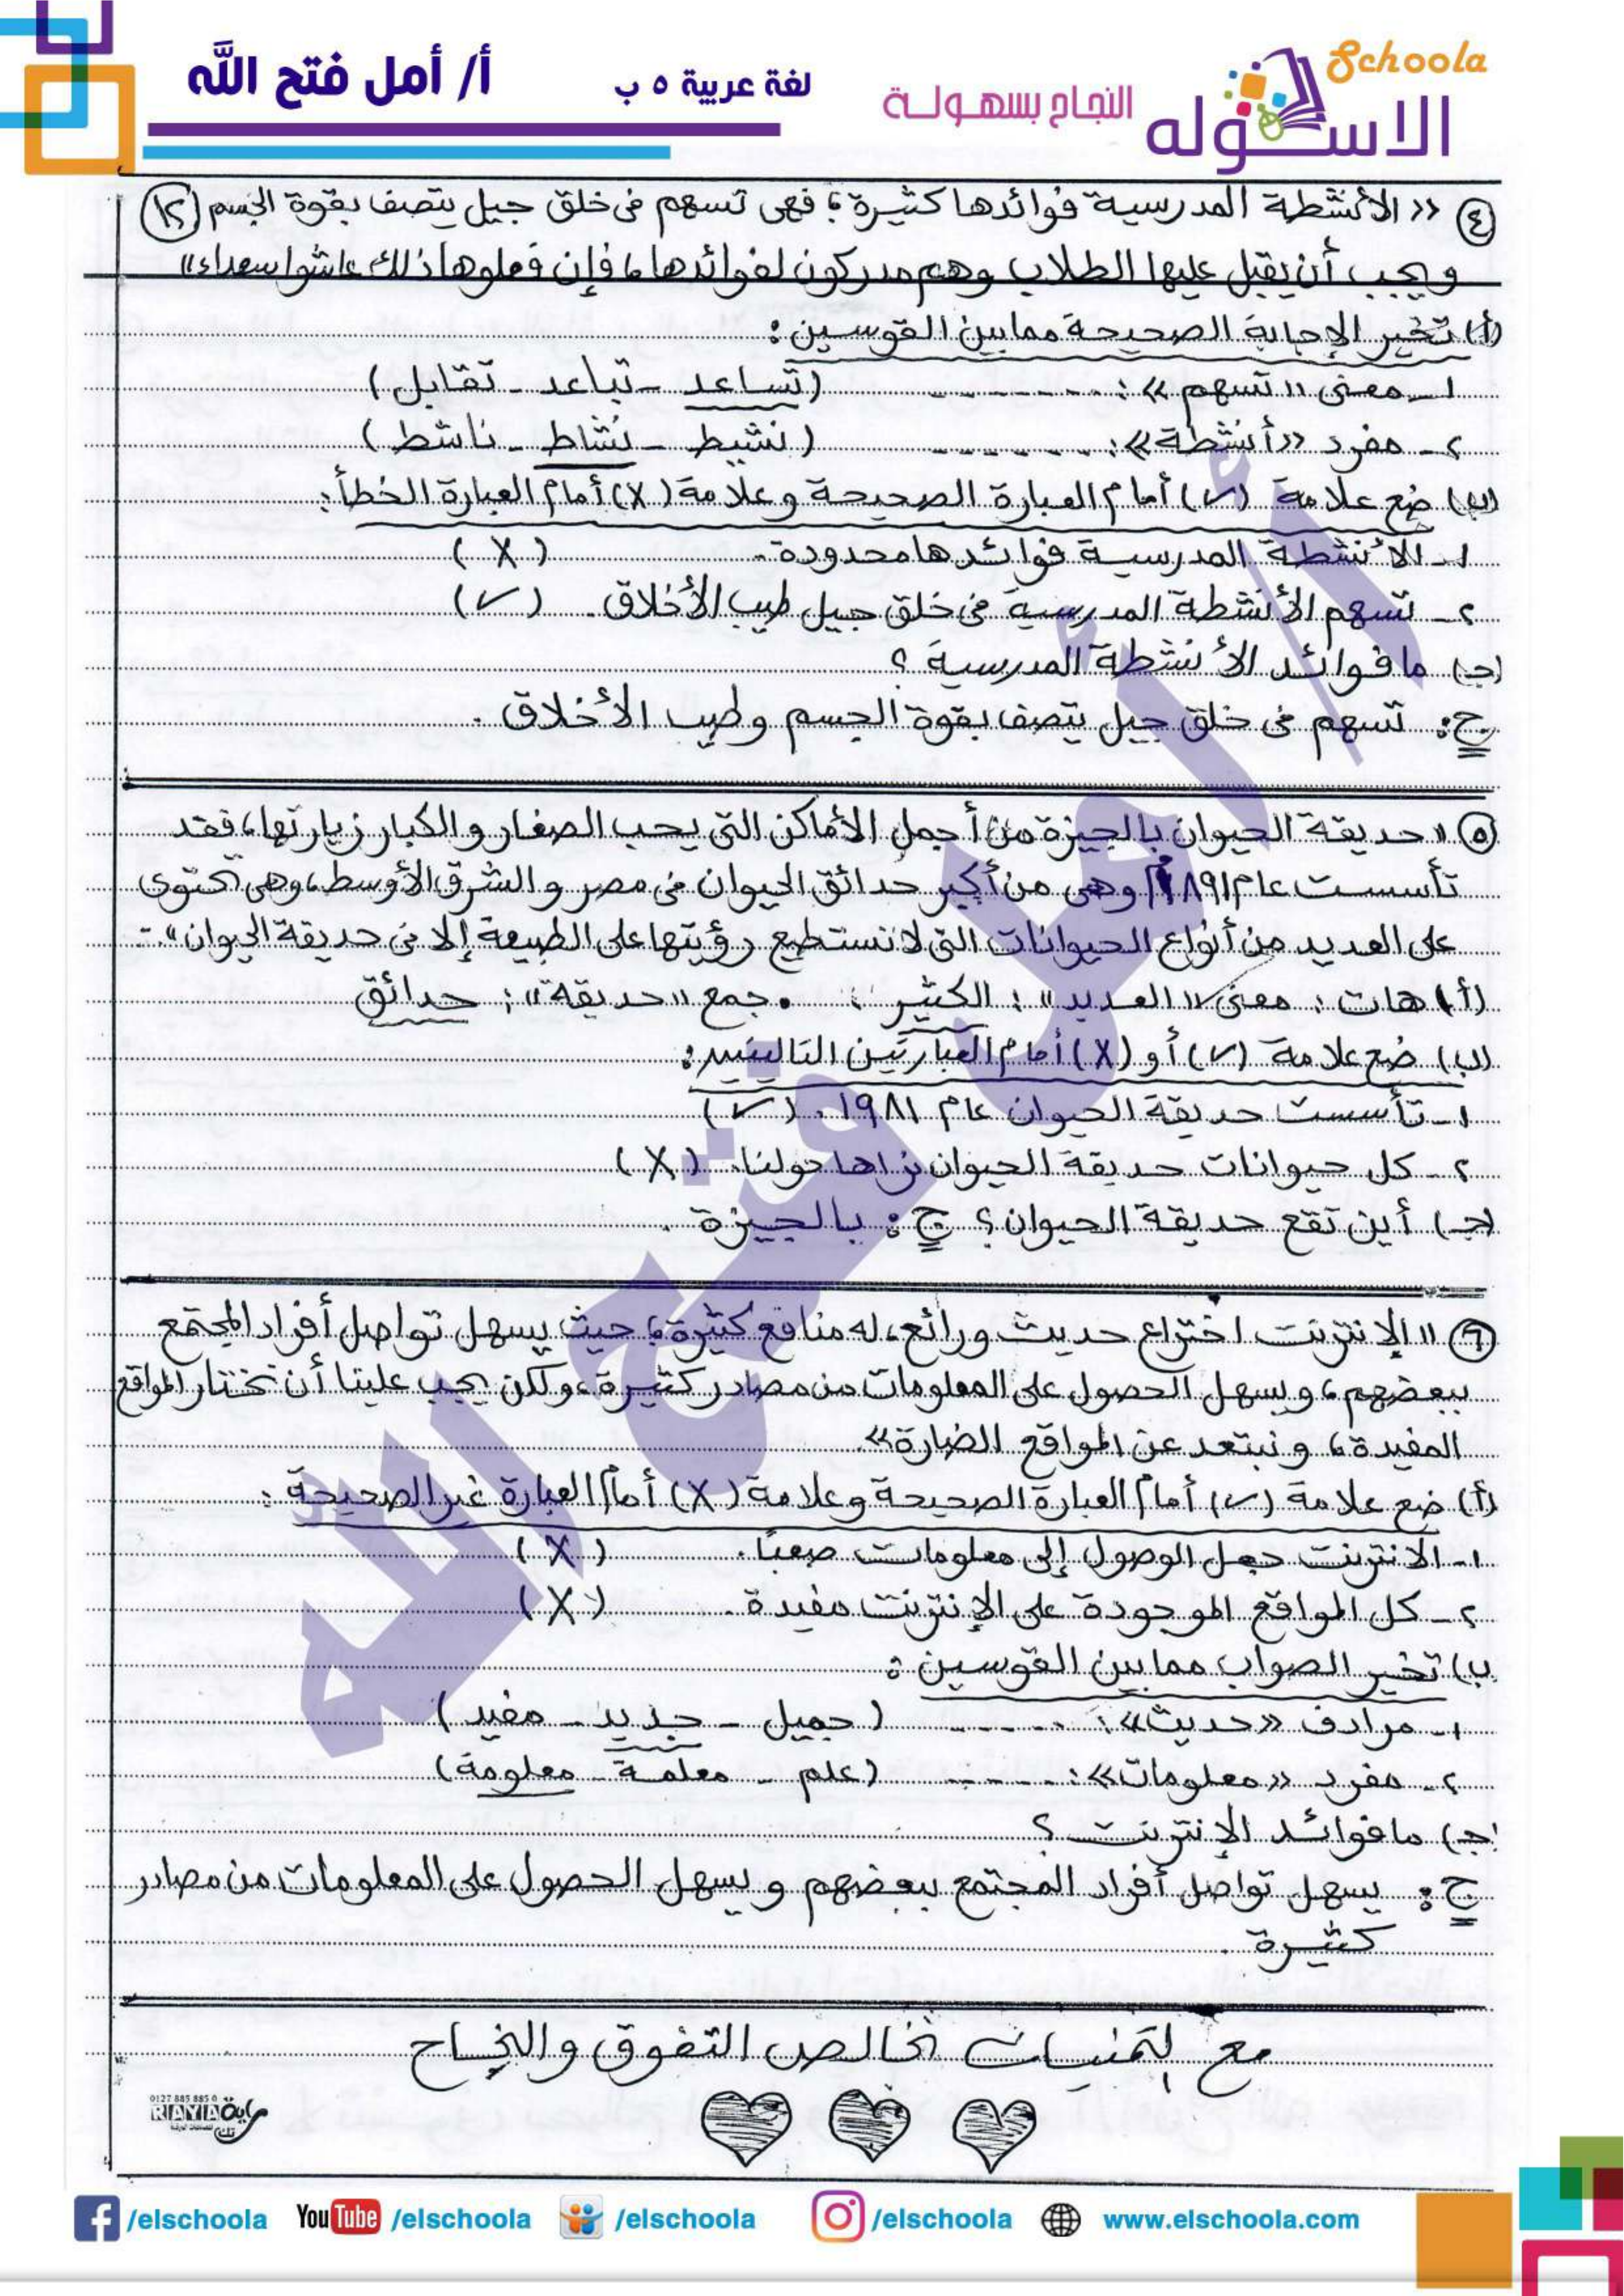 Schoola
الاسكوله
النجاح بسهولة
لغة عربية ٥ ب
أ/ أمل فتح الله
٤ «الأنشطة المدرسية فوائدها كثيرة؛ فهى تسهم فى خلق جيل يتصف بقوة الجسم (١٢)
ويجب أن يقبل عليها الطلاب وهم مدركون لفوائدها، فإن فعلوها ذلك عاشوا سعداء»
(أ) تخير الإجابة الصحيحة ممابين القوسين:
١- معنى «تسهم»: ........ (تساعد - تباعد - تقابل)
٢- مفرد «أنشطة»: ........ (نشيط - نشاط - ناشط)
(ب) ضع علامة (✓) أمام العبارة الصحيحة وعلامة (X) أمام العبارة الخطأ:
١- الأنشطة المدرسية فوائدها محدودة. (X)
٢- تسهم الأنشطة المدرسية فى خلق جيل طيب الأخلاق. (✓)
(جـ) ما فوائد الأنشطة المدرسية؟
ج: تسهم فى خلق جيل يتصف بقوة الجسم وطيب الأخلاق.
٥ «حديقة الحيوان بالجيزة من أجمل الأماكن التى يحب الصغار والكبار زيارتها، فقد
تأسست عام ١٨٩١م وهى من أكبر حدائق الحيوان فى مصر والشرق الأوسط، وهى تحتوى
على العديد من أنواع الحيوانات التى لا نستطيع رؤيتها على الطبيعة إلا فى حديقة الحيوان».
(أ) هات: معنى «العديد»: الكثير. جمع «حديقة»: حدائق
(ب) ضع علامة (✓) أو (X) أمام العبارتين التاليتين:
١- تأسست حديقة الحيوان عام ١٩٨١. (✓)
٢- كل حيوانات حديقة الحيوان نراها حولنا. (X)
(جـ) أين تقع حديقة الحيوان؟ ج: بالجيزة.
٦ «الإنترنت اختراع حديث ورائع، له منافع كثيرة؛ حيث يسهل تواصل أفراد المجتمع
ببعضهم، ويسهل الحصول على المعلومات من مصادر كثيرة، ولكن يجب علينا أن نختار المواقع
المفيدة، ونبتعد عن المواقع الضارة».
(أ) ضع علامة (✓) أمام العبارة الصحيحة وعلامة (X) أمام العبارة غير الصحيحة:
١- الانترنت جعل الوصول إلى معلومات صعبًا. (X)
٢- كل المواقع الموجودة على الإنترنت مفيدة. (X)
ب) تخير الصواب ممابين القوسين:
١- مرادف «حديث»: ........ (جميل - جديد - مفيد)
٢- مفرد «معلومات»: ........ (علم - معلمة - معلومة)
(جـ) مافوائد الإنترنت؟
ج: يسهل تواصل أفراد المجتمع ببعضهم ويسهل الحصول على المعلومات من مصادر
كثيرة.
مع تمنيات خالص التفوق والنجاح
0127 885 885 0
RAYA راية
أ/ أمل فتح الله
/elschoola
YouTube /elschoola
/elschoola
/elschoola
www.elschoola.com